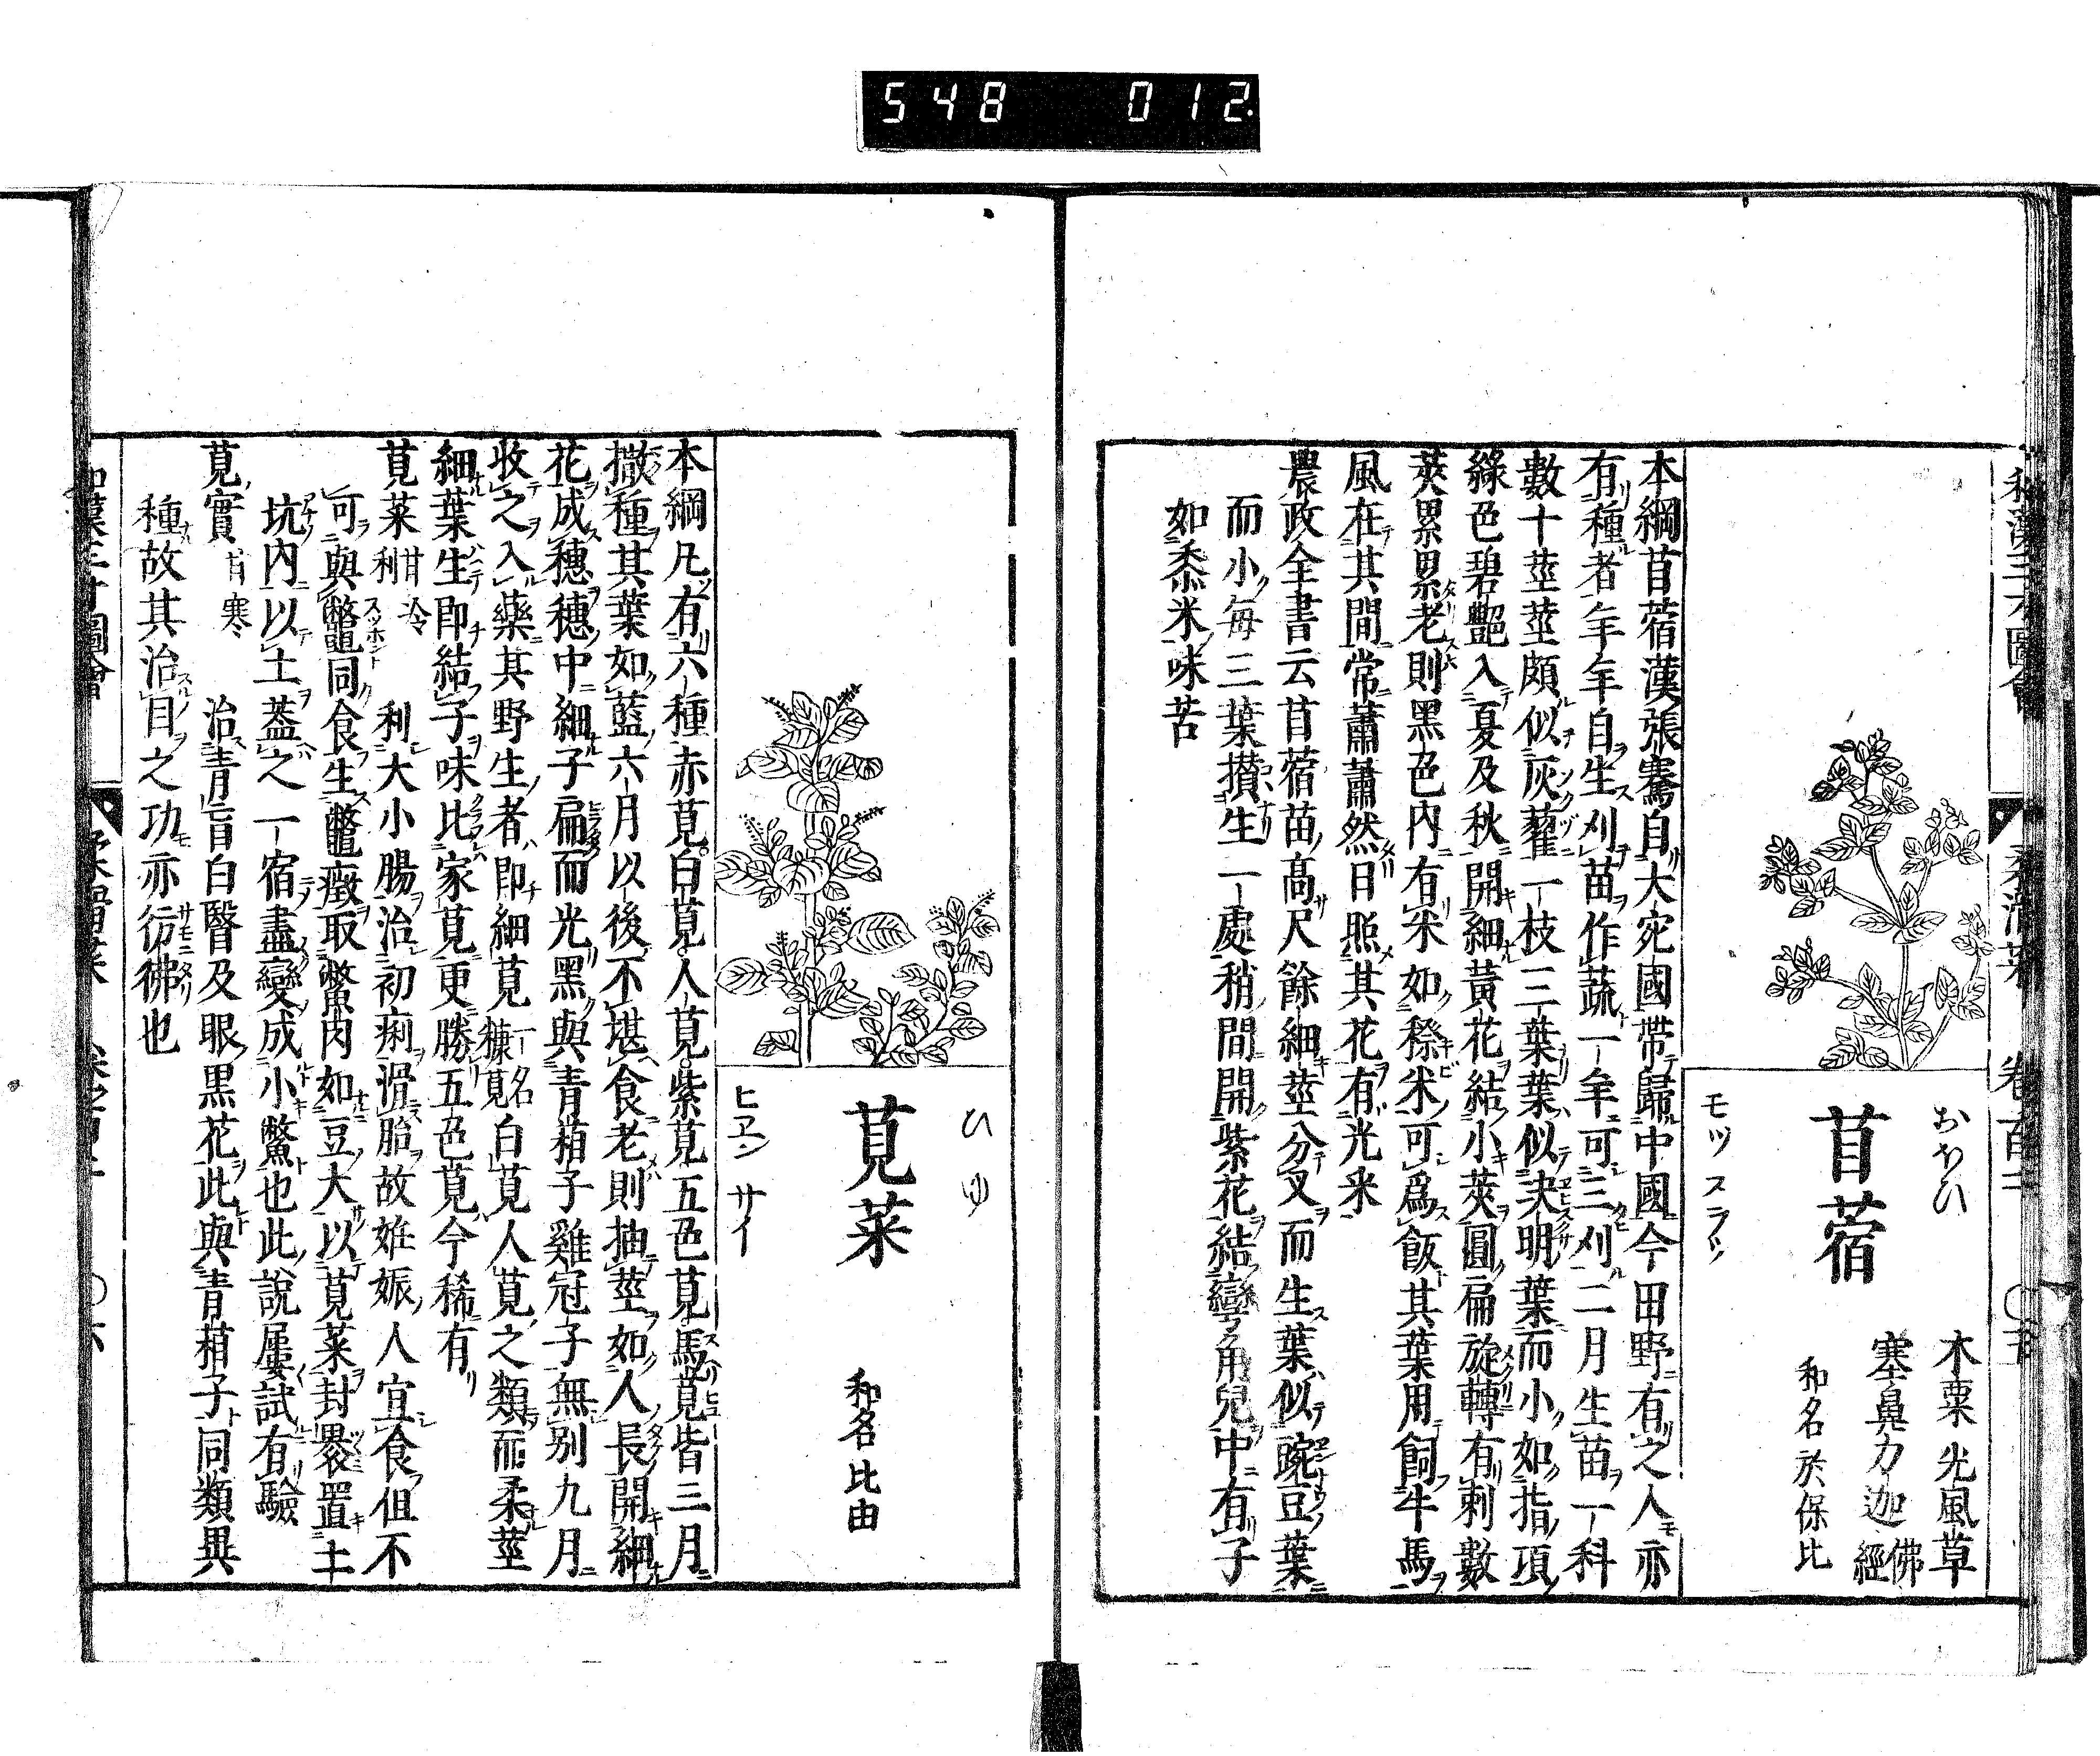 548 012.
和漢三才圖會 柔滑菜 卷百二
おほひ
苜蓿
モツ スツ
木粟 光風草
塞鼻力迦 佛經
和名於保比
本綱苜蓿漢張騫自大宛國帶歸中國今田野有之人亦
有種者年年自生刈苗作蔬一年可三刈二月生苗一科
數十莖莖頗似灰藋一枝三葉葉似决明葉而小如指頂
綠色碧艷入夏及秋開細黃花結小莢圓扁旋轉有刺數
莢累累老則黑色內有米如穄米可爲飯其葉用飼牛馬
風在其間常蕭蕭然日照其花有光釆
農政全書云苜蓿苗高尺餘細莖分叉而生葉似豌豆葉
而小每三葉攅生一處稍間開紫花結彎角兒中有子
如黍米味苦
ひゆ
莧菜
ヒヱン サイ
和名比由
本綱凡有六種赤莧白莧人莧紫莧五色莧馬莧皆三月
撒種其葉如藍六月以後不堪食老則抽莖如人長開細
花成穗穗中細子扁而光黑與青葙子雞冠子無別九月
收之入藥其野生者即細莧一名糠莧白莧人莧之類而柔莖
細葉生即結子味比家莧更勝五色莧今稀有
莧菜 甘冷利 利大小腸治初痢滑胎故姙娠人宜食但不
可與鼈同食生鼈癥取鱉肉如豆大以莧菜封裹置土
坑內以土葢之一宿盡變成小鱉也此說屢試有驗
莧實 甘寒 治青盲白瞖及眼黑花此與青葙子同類異
種故其治目之功亦彷彿也
和漢三才圖會 柔滑菜 卷之百二 〇六